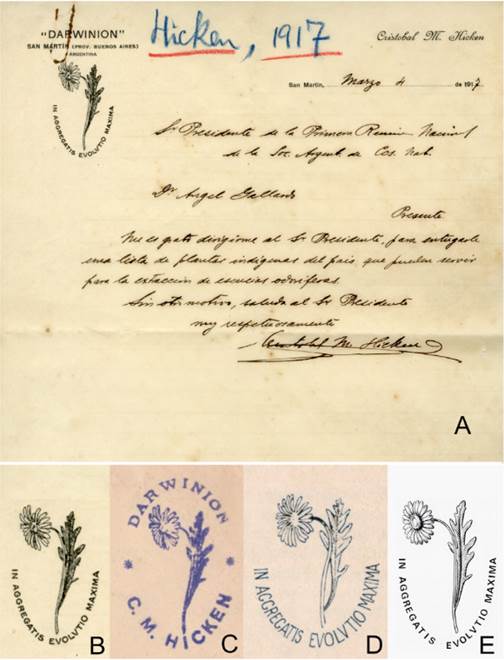 Hicken, 1917
"DARWINION"
SAN MARTÍN (PROV. BUENOS AIRES)
ARGENTINA
IN AGGREGATIS EVOLVTIO MAXIMA
Cristobal M. Hicken
San Martin, Marzo 4 de 1917
Sr Presidente de la Primera Reunion Nacional
de la Soc. Argent. de Cos. Nat.
Dr Angel Gallardo
Presente
Me es grato dirigirme al Sr Presidente, para entregarle
una lista de plantas indigenas del pais, que pueden servir
para la extraccion de esencias odoriferas.
Sin otro motivo, saluda al Sr Presidente
muy respetuosamente
Cristobal M. Hicken
A
IN AGGREGATIS EVOLVTIO MAXIMA
B
DARWINION
* *
C. M. HICKEN
C
IN AGGREGATIS EVOLVTIO MAXIMA
D
IN AGGREGATIS EVOLVTIO MAXIMA
E